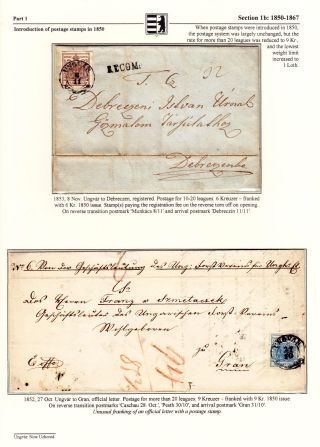 Part 1
Section 1b: 1850-1867
Introduction of postage stamps in 1850
When postage stamps were introduced in 1850,
the postage system was largely unchanged, but the
rate for more than 20 leagues was reduced to 9 Kr.,
and the lowest
weight limit
increased to
1 Loth.
UNGVÁR
RECOM:
T. Q.
Debreczeni Istvan Urnal
Debreczenbe
1853, 8 Nov. Ungvár to Debreczen, registered. Postage for 10-20 leagues: 6 Kreuzer – franked
with 6 Kr. 1850 issue. Stamp(s) paying the registration fee on the reverse torn off on opening.
On reverse transition postmark 'Munkács 8/11' and arrival postmark 'Debreczin 11/11'
Franz v.
Wohlgeboren
Gran
1852, 27 Oct. Ungvár to Gran, official letter. Postage for more than 20 leagues: 9 Kreuzer – franked with 9 Kr. 1850 issue.
On reverse transition postmarks 'Caschau 28. Oct.', 'Pesth 30/10', and arrival postmark 'Gran 31/10'.
Unusual franking of an official letter with a postage stamp.
Ungvár: Now Uzhorod.